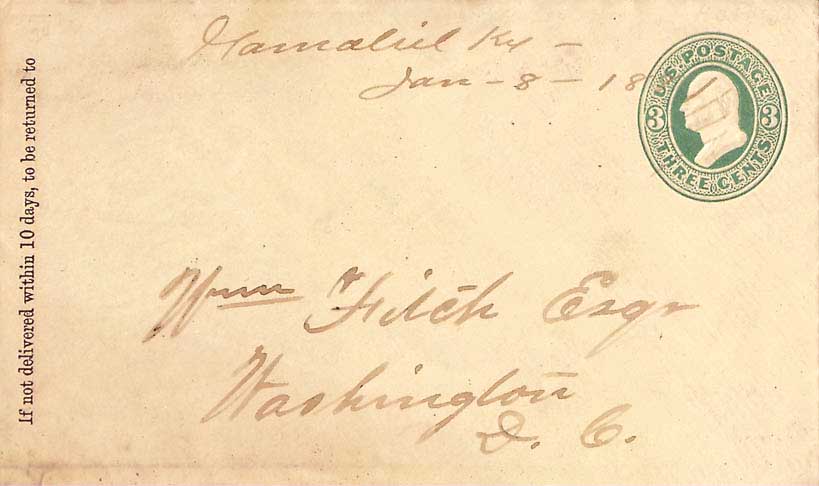 Gamaliel Ky –
Jan – 8 – 18
U.S. POSTAGE
3 3
THREE CENTS
If not delivered within 10 days, to be returned to
Wm Fitch Esqr
Washington
D. C.